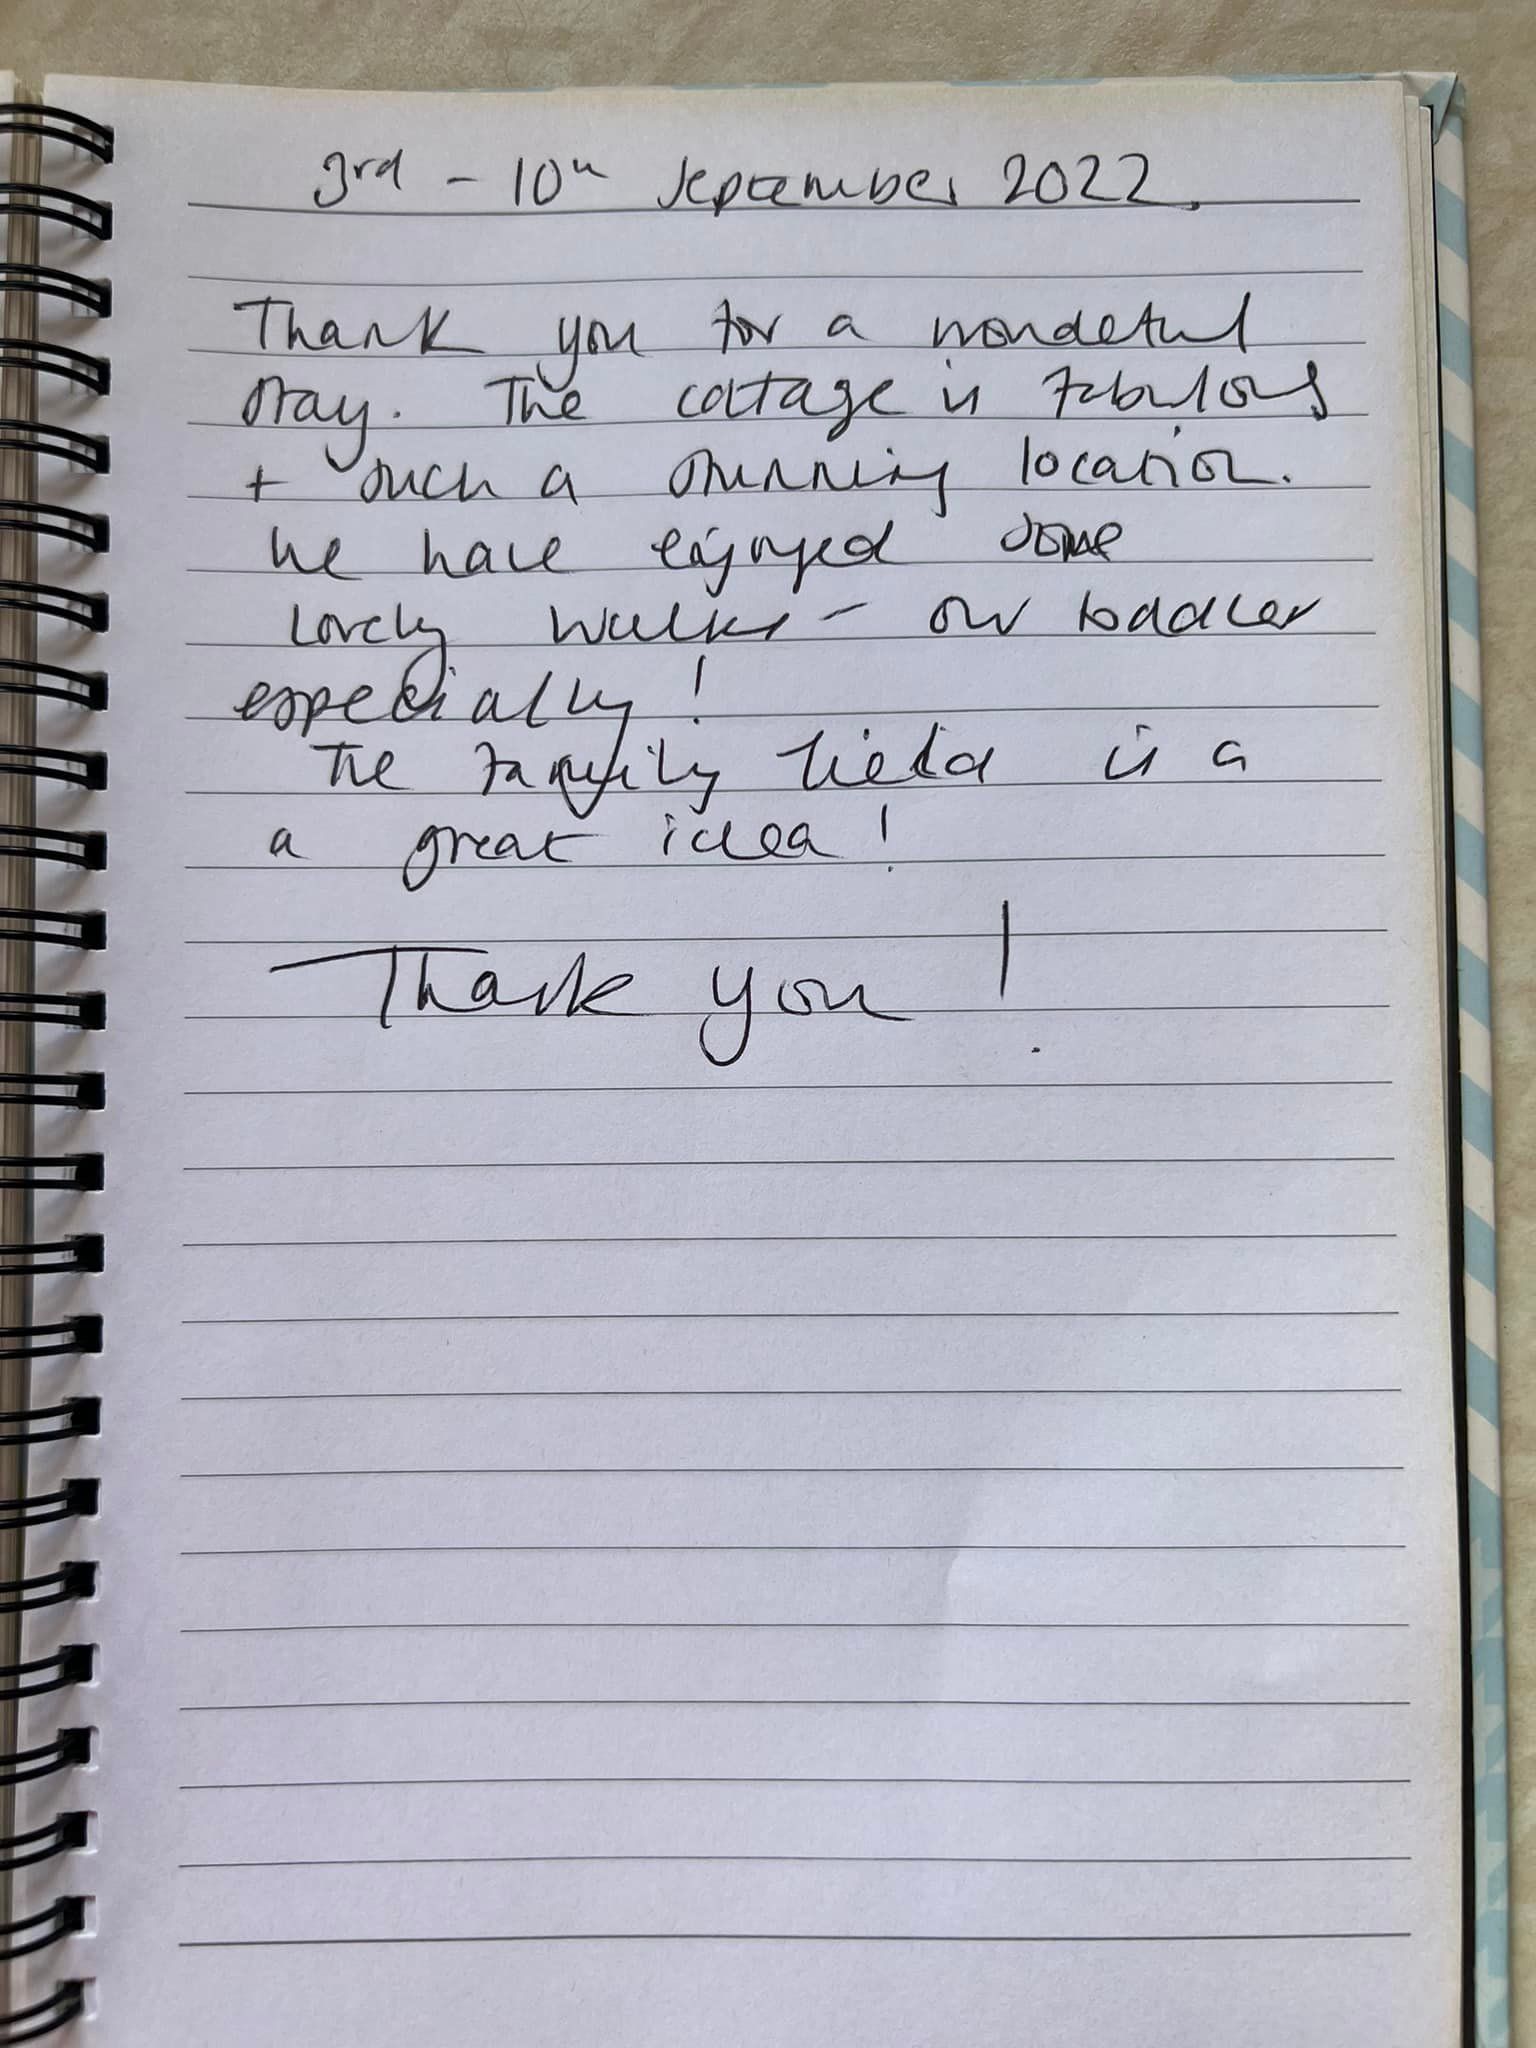 3rd - 10th September 2022.
Thank you for a wonderful
stay. The cottage is fabulous
+ such a stunning location.
We have enjoyed some
lovely walks - our toddler
especially!
The family field is a
a great idea!
Thank you!